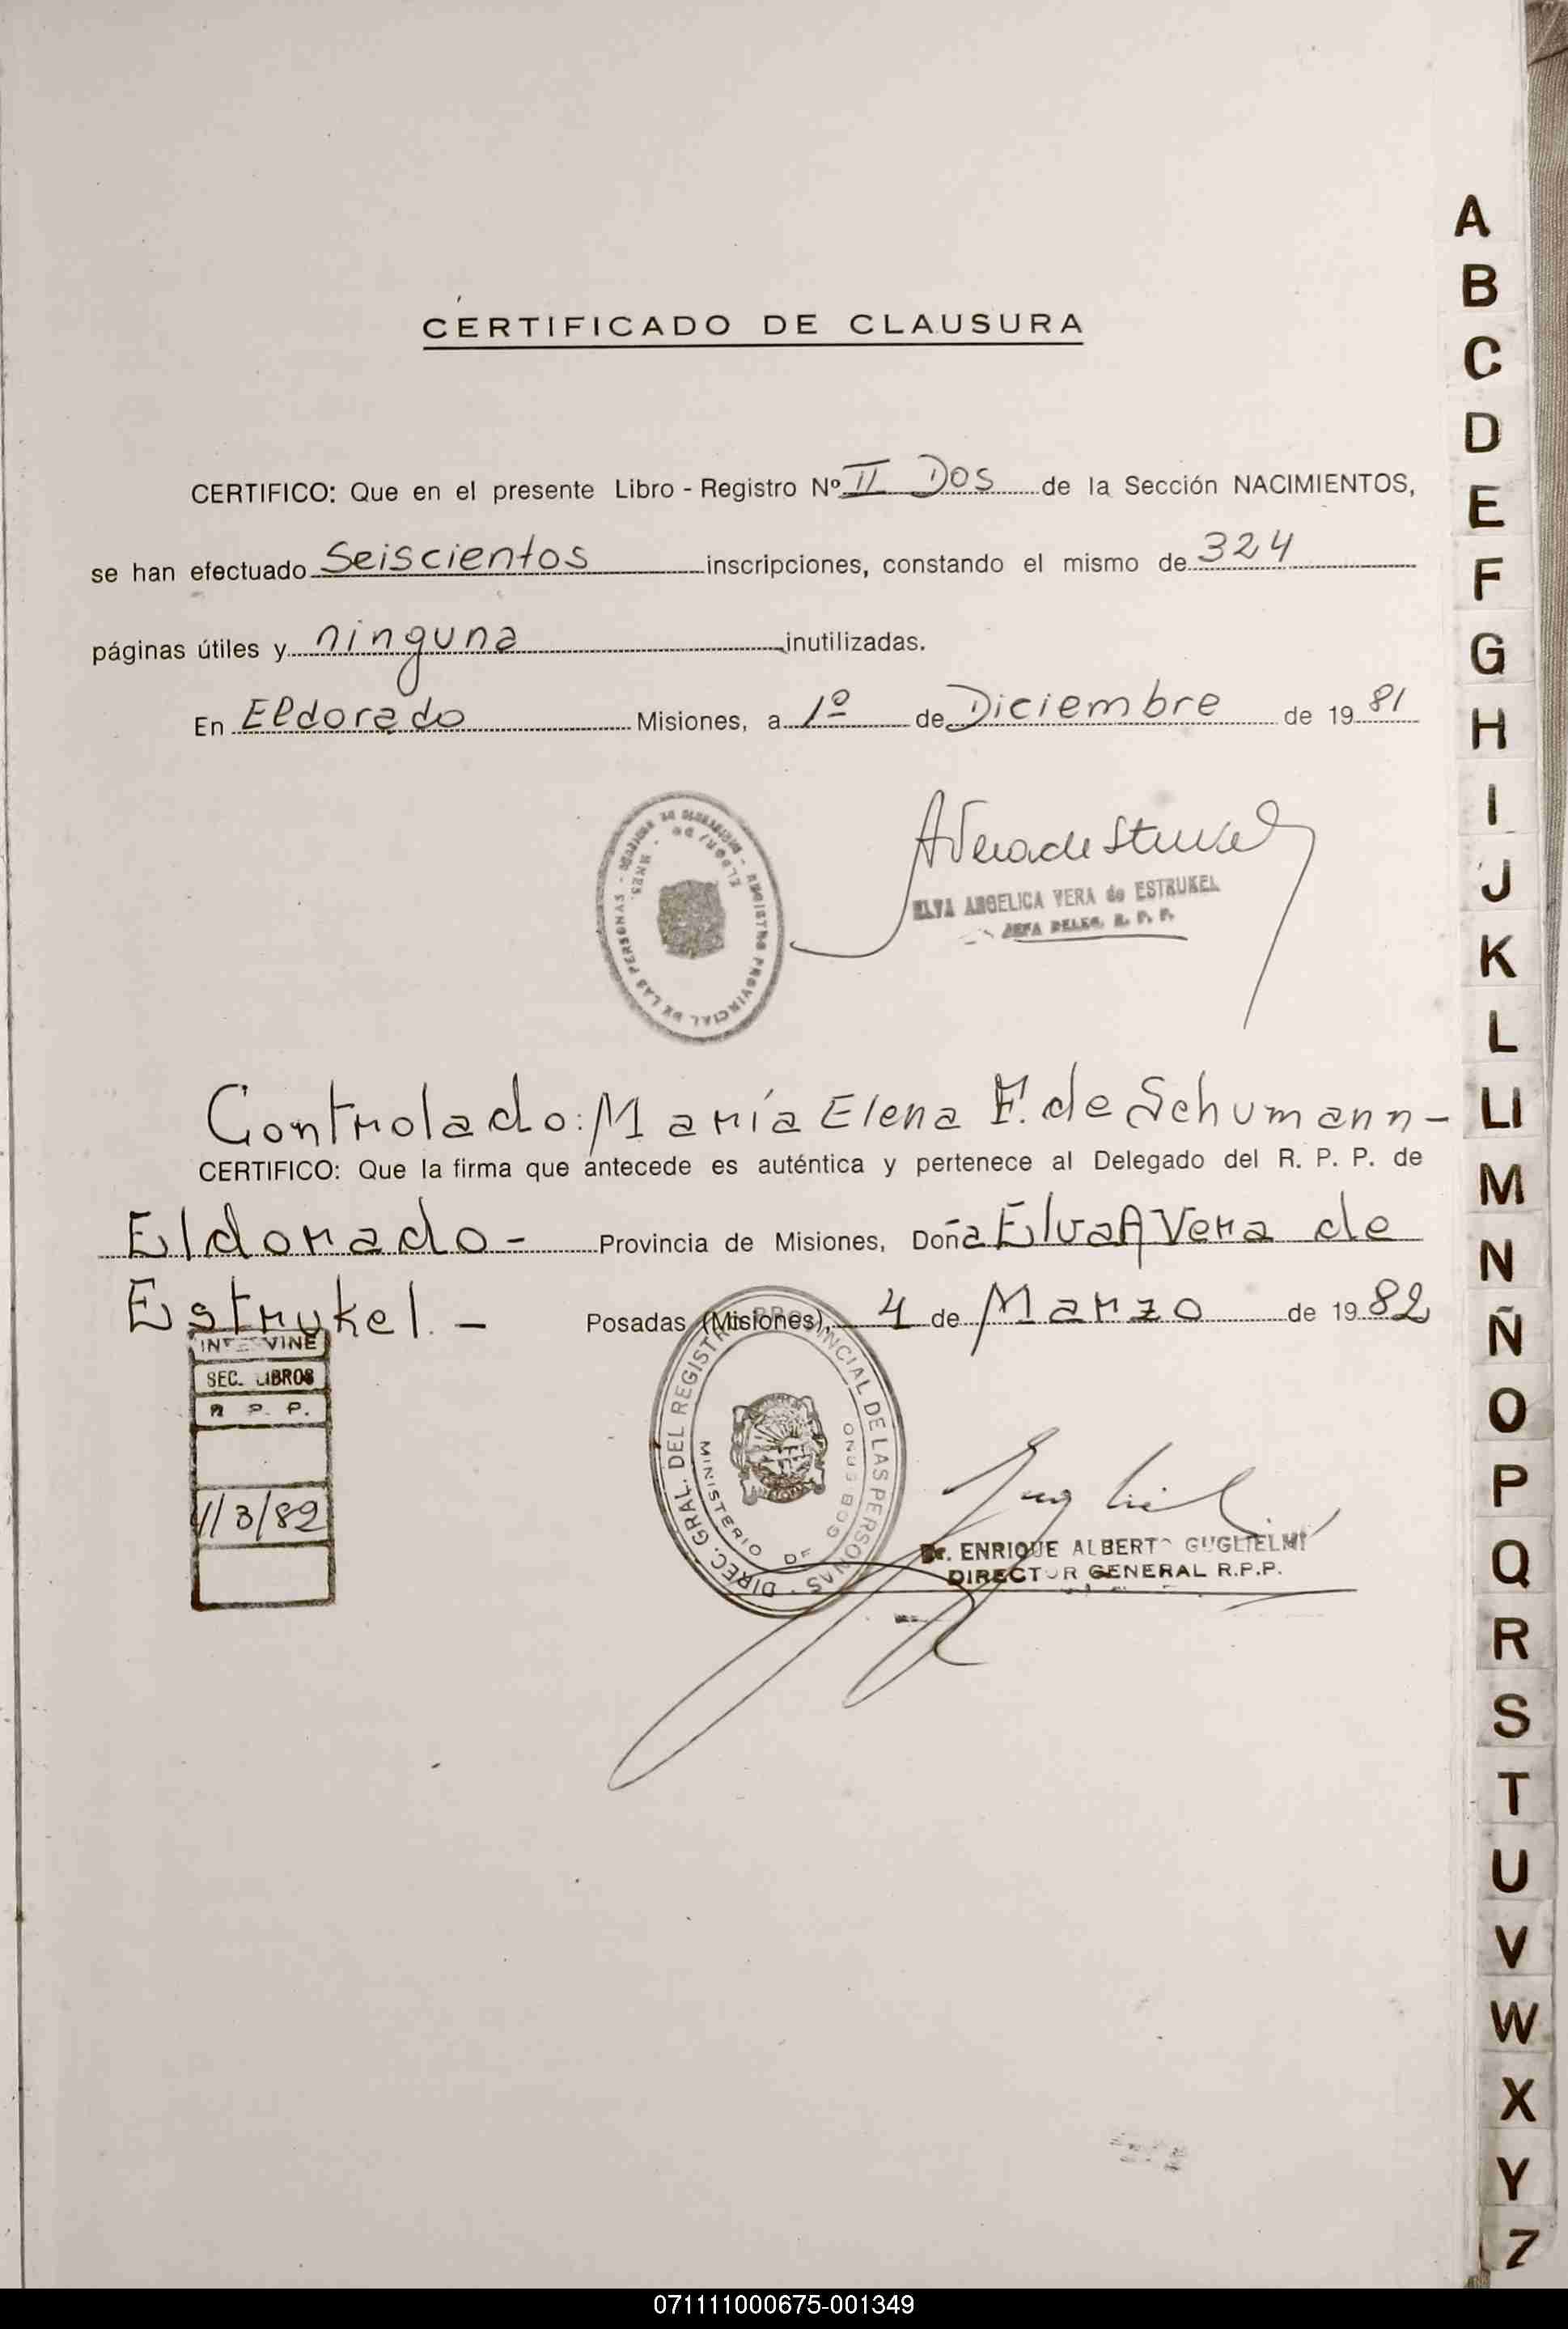 CERTIFICADO DE CLAUSURA
CERTIFICO: Que en el presente Libro - Registro Nº II Dos de la Sección NACIMIENTOS,
se han efectuado Seiscientos inscripciones, constando el mismo de 324
páginas útiles y ninguna inutilizadas.
En Eldorado Misiones, a 1º de Diciembre de 19 81
REGISTRO PROVINCIAL DE LAS PERSONAS
ELVA ANGELICA VERA de ESTRUKEL
JEFA DELEG. R. P. P.
Controlado: María Elena F. de Schumann -
CERTIFICO: Que la firma que antecede es auténtica y pertenece al Delegado del R. P. P. de
Eldorado - Provincia de Misiones, Doña Elva A Vera de
Estrukel. - Posadas (Misiones), 4 de Marzo de 19 82
INTERVINE
SEC. LIBROS
R P. P.
1/3/82
DIREC. GRAL. DEL REGISTRO PROVINCIAL DE LAS PERSONAS
MINISTERIO DE GOBIERNO
Dr. ENRIQUE ALBERTO GUGLIELMI
DIRECTOR GENERAL R.P.P.
A
B
C
D
E
F
G
H
I
J
K
L
Ll
M
N
Ñ
O
P
Q
R
S
T
U
V
W
X
Y
Z
071111000675-001349